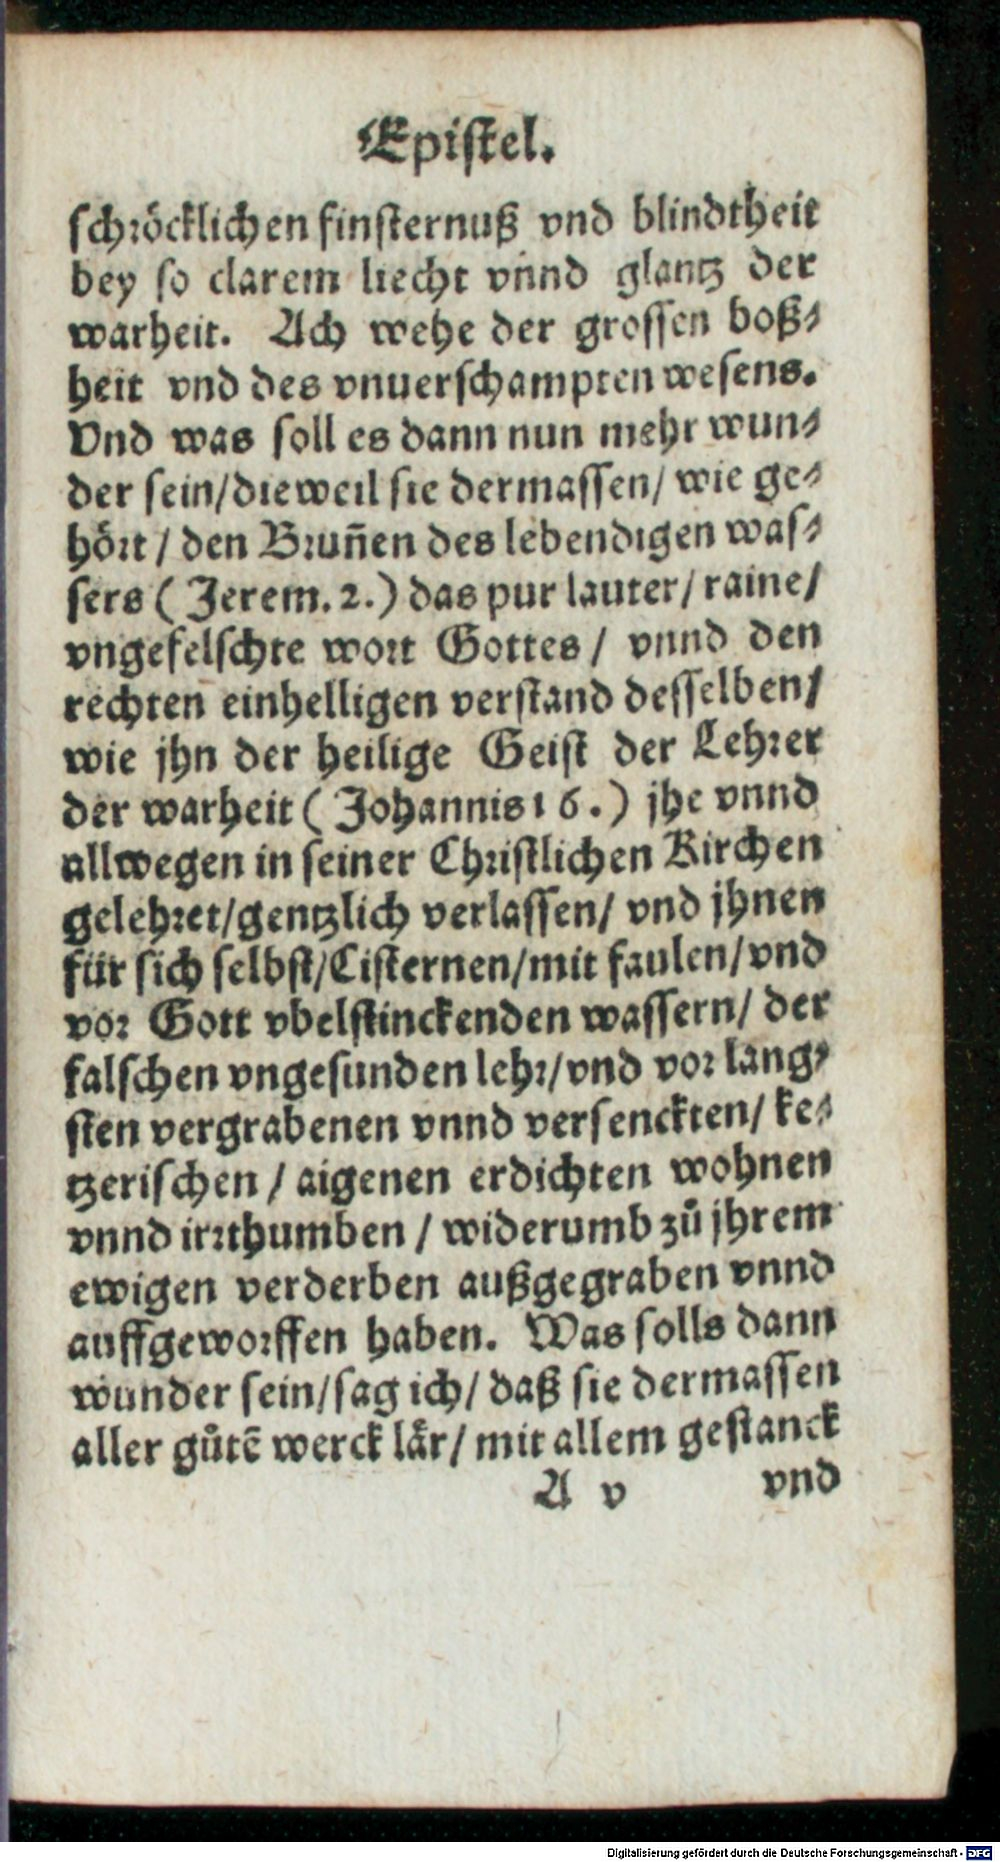 Epistel.
schröcklichen finsternuß vnd blindtheit
bey so clarem liecht vnnd glantz der
warheit. Ach wehe der grossen boß-
heit vnd des vnuerschampten wesens.
Vnd was soll es dann nun mehr wun-
der sein/dieweil sie dermassen/ wie ge-
hört / den Brun̄en des lebendigen was-
sers ( Jerem. 2.) das pur lauter/ raine/
vngefelschte wort Gottes / vnnd den
rechten einhelligen verstand desselben/
wie jhn der heilige Geist der Lehrer
der warheit ( Johannis 16.) jhe vnnd
allwegen in seiner Christlichen Kirchen
gelehret/gentzlich verlassen/ vnd jhnen
für sich selbst/Cisternen/mit faulen/vnd
vor Gott vbelstinckenden wassern/ der
falschen vngesunden lehr/vnd vor lang-
sten vergrabenen vnnd versenckten/ ke-
tzerischen / aigenen erdichten wohnen
vnnd irrthumben / widerumb zů jhrem
ewigen verderben außgegraben vnnd
auffgeworffen haben. Was solls dann
wunder sein/sag ich/ daß sie dermassen
aller gůtē werck lär/ mit allem gestanck
A v vnd
Digitalisierung gefördert durch die Deutsche Forschungsgemeinschaft - DFG